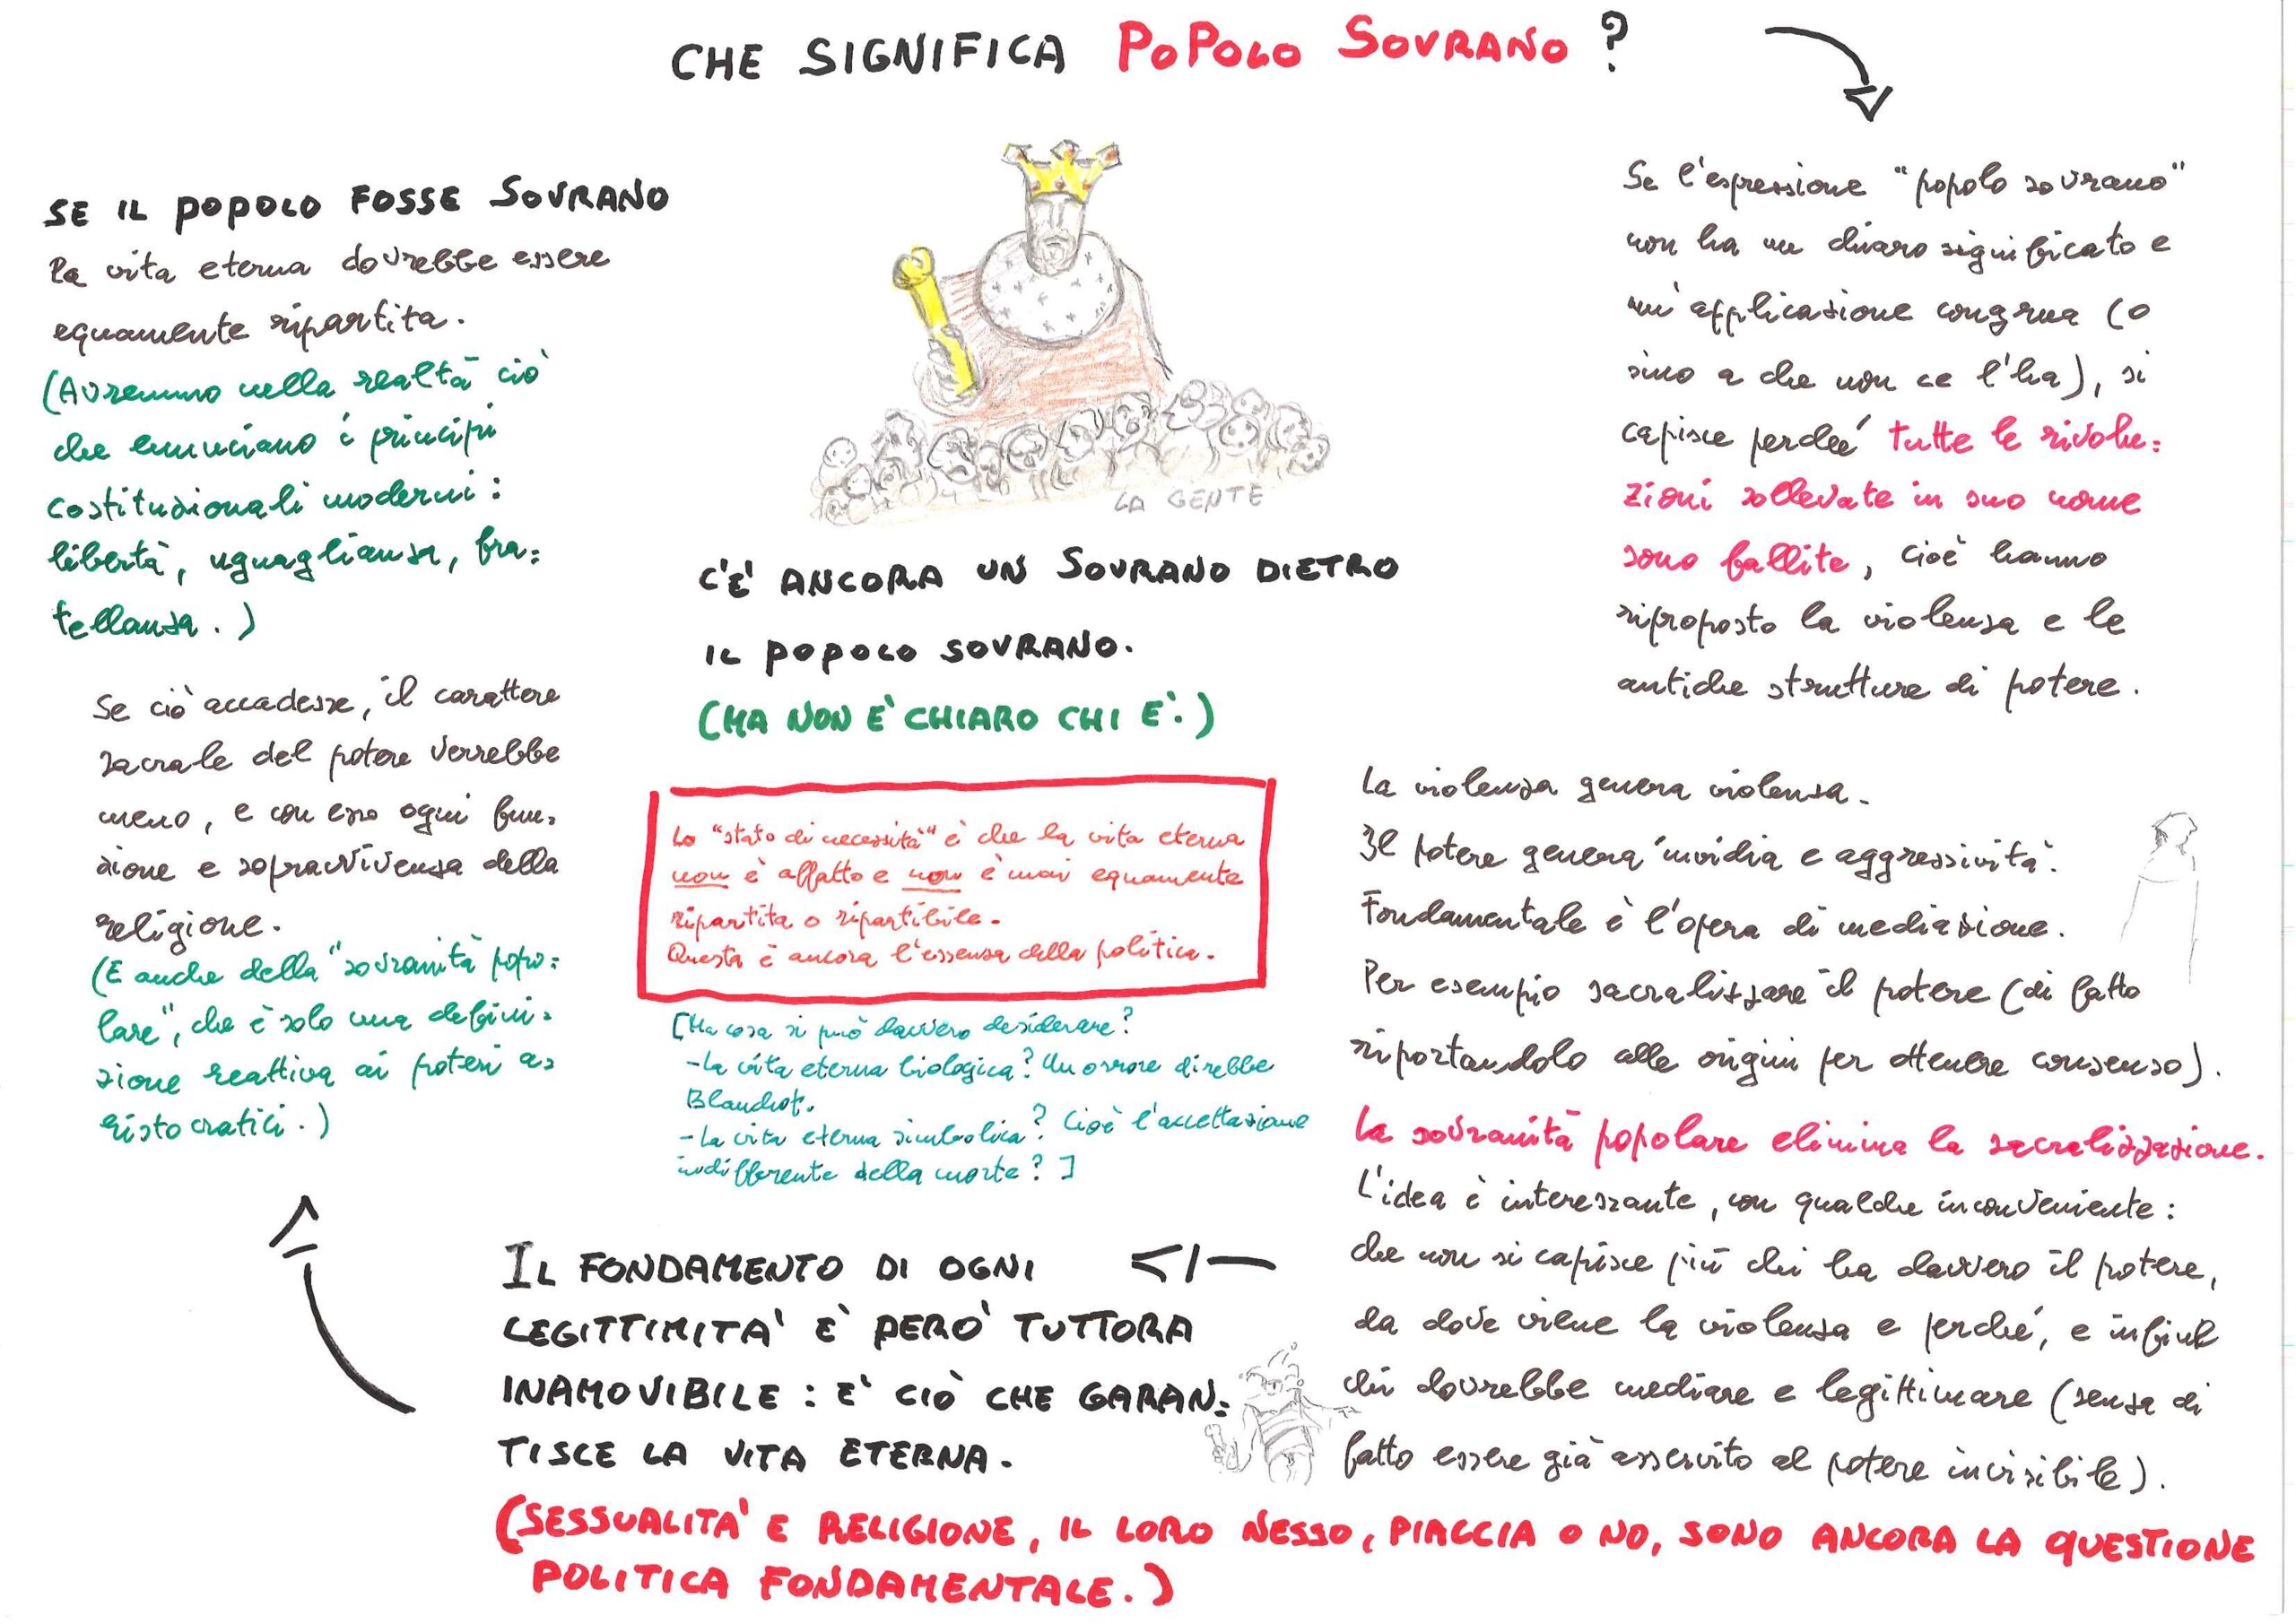 CHE SIGNIFICA POPOLO SOVRANO ?
Se l'espressione "popolo sovrano"
non ha un chiaro significato e
un'applicazione congrua (o
sino a che non ce l'ha), si
capisce perché tutte le rivolu=
zioni sollevate in suo nome
sono fallite, cioè hanno
riproposto la violenza e le
antiche strutture di potere.
La violenza genera violenza.
Il potere genera invidia e aggressività.
Fondamentale è l'opera di mediazione.
Per esempio sacralizzare il potere (di fatto
riportandolo alle origini per ottenere consenso).
La sovranità popolare elimina la sacralizzazione.
L'idea è interessante, con qualche inconveniente:
che non si capisce più chi ha davvero il potere,
da dove viene la violenza e perché, e infine
chi dovrebbe mediare e legittimare (senza di
fatto essere già asservito al potere invisibile).
IL FONDAMENTO DI OGNI
LEGITTIMITA' E' PERO' TUTTORA
INAMOVIBILE : E' CIÒ CHE GARAN=
TISCE LA VITA ETERNA.
(SESSUALITA' E RELIGIONE, IL LORO NESSO, PIACCIA O NO, SONO ANCORA LA QUESTIONE
POLITICA FONDAMENTALE.)
SE IL POPOLO FOSSE SOVRANO
la vita eterna dovrebbe essere
equamente ripartita.
(Avremmo nella realtà ciò
che enunciano i principi
costituzionali moderni:
libertà, uguaglianza, fra=
tellanza.)
Se ciò accadesse, il carattere
sacrale del potere verrebbe
meno, e con esso ogni fun=
zione e sopravvivenza della
religione.
(E anche della "sovranità popo=
lare", che è solo una defini=
zione reattiva ai poteri a=
ristocratici.)
LA GENTE
C'E' ANCORA UN SOVRANO DIETRO
IL POPOLO SOVRANO.
(MA NON E' CHIARO CHI E'.)
Lo "stato di necessità" è che la vita eterna
non è affatto e non è mai equamente
ripartita o ripartibile.
Questa è ancora l'essenza della politica.
[Ma cosa si può davvero desiderare?
-La vita eterna biologica? Un orrore direbbe
Blanchot.
-La vita eterna simbolica? Cioè l'accettazione
indifferente della morte?]